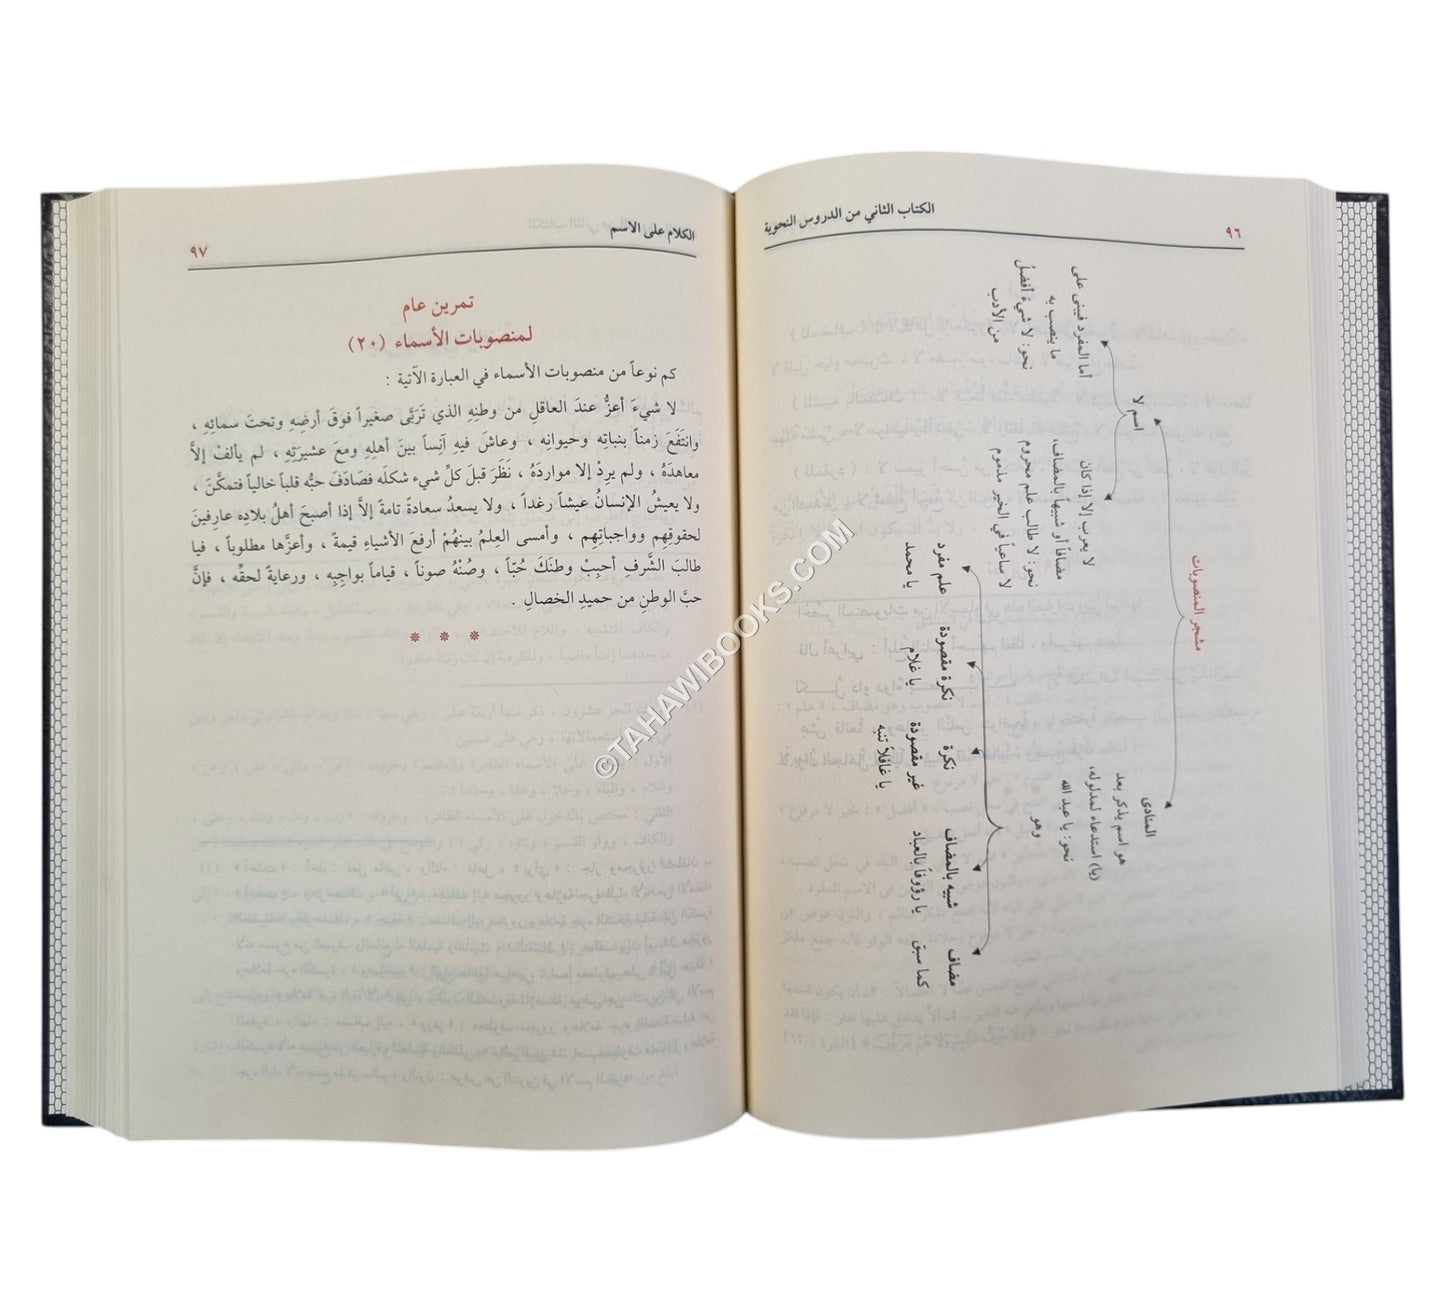 ٩٦
الكتاب الثاني من الدروس النحوية
مشجر المنصوبات
اسم لا
أما المفرد فيبنى على
ما ينصب به
نحو: لا شيءَ أفضلُ
من الأدب
لا يعرب إلا إذا كان
مضافاً أو شبيهاً بالمضاف،
نحو: لا طالب علم محروم
لا ساعياً في الخير مذموم
المنادى
هو اسم يذكر بعد
(يا) استدعاء لمدلوله،
نحو: يا عبد الله
وهو
علم مفرد
يا محمد
نكرة مقصودة
يا غلام
نكرة
غير مقصودة
يا غافلاً تنبه
شبيه بالمضاف
يا رؤوفاً بالعباد
مضاف
كما سبق
الكلام على الاسم
٩٧
تمرين عام
لمنصوبات الأسماء (٢٠)
كم نوعاً من منصوبات الأسماء في العبارة الآتية :
لا شيءَ أعزُّ عندَ العاقلِ من وطنِهِ الذي تَرَبَّى صغيراً فوقَ أرضِهِ وتحتَ سمائِهِ ،
وانتَفَعَ زمناً بنباتِه وحيوانِه ، وعاشَ فيهِ آنِساً بينَ أهلِهِ ومعَ عشيرَتِهِ ، لم يألفْ إلاَّ
معاهدَهُ ، ولم يرِدْ إلا مواردَهُ ، نَظَرَ قبلَ كلِّ شيء شكلَه فصَادَفَ حبُّه قلباً خالياً فتمكَّنَ ،
ولا يعيشُ الإنسانُ عيشاً رغداً ، ولا يسعدُ سعادة تامةً إلاَّ إذا أصبحَ أهلُ بلادِه عارِفينَ
لحقوقِهم وواجباتِهم ، وأمسى العِلمُ بينهُمْ أرفعَ الأشياءِ قيمةً ، وأعزَّها مطلوباً ، فيا
طالبَ الشَّرفِ أحبِبْ وطنَكَ حُبّاً ، وصُنْهُ صوناً ، قياماً بواجبِه ، ورعايةً لحقِّه ، فإنَّ
حبَّ الوطنِ من حميدِ الخصالِ .
* * *
©TAHAWIBOOKS.COM